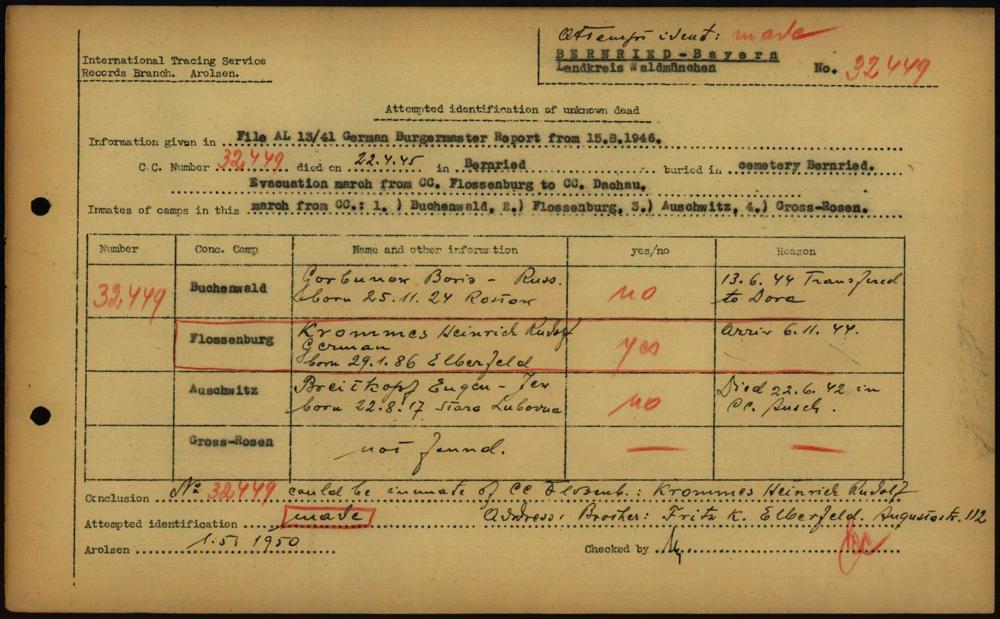 Attempt ident: made
BERNRIED-Bayern
Landkreis Waldmünchen
No. 32449
International Tracing Service
Records Branch. Arolsen.
Attempted identification of unknown dead
Information given in File AL 13/41 German Burgermaster Report from 15.8.1946.
C.C. Number 32,449 died on 22.4.45 in Bernried buried in cemetery Bernried.
Evacuation march from CC. Flossenburg to CC. Dachau.
Inmates of camps in this march from CC.: 1.) Buchenwald, 2.) Flossenburg, 3.) Auschwitz, 4.) Gross-Rosen.
Number Conc. Camp Name and other information yes/no Reason
32,449 Buchenwald Gorbunow Boris - Russ. born 25.11.24 Rostow no 13.6.44 Transfered to Dora
Flossenburg Krommes Heinrich Rudolf German born 29.1.86 Elberfeld yes Arriv 6.11.44.
Auschwitz Breitkopf Eugen - Jew born 22.8.17 Stara Lubovna no Died 22.6.42 in CC. Ausch.
Gross-Rosen not found. — —
Conclusion No 32,449 could be inmate of CC Flossenb.: Krommes Heinrich Rudolf
Attempted identification made Address: Brother: Fritz K. Elberfeld. Augustastr. 112
Arolsen 1.5. 1950 Checked by